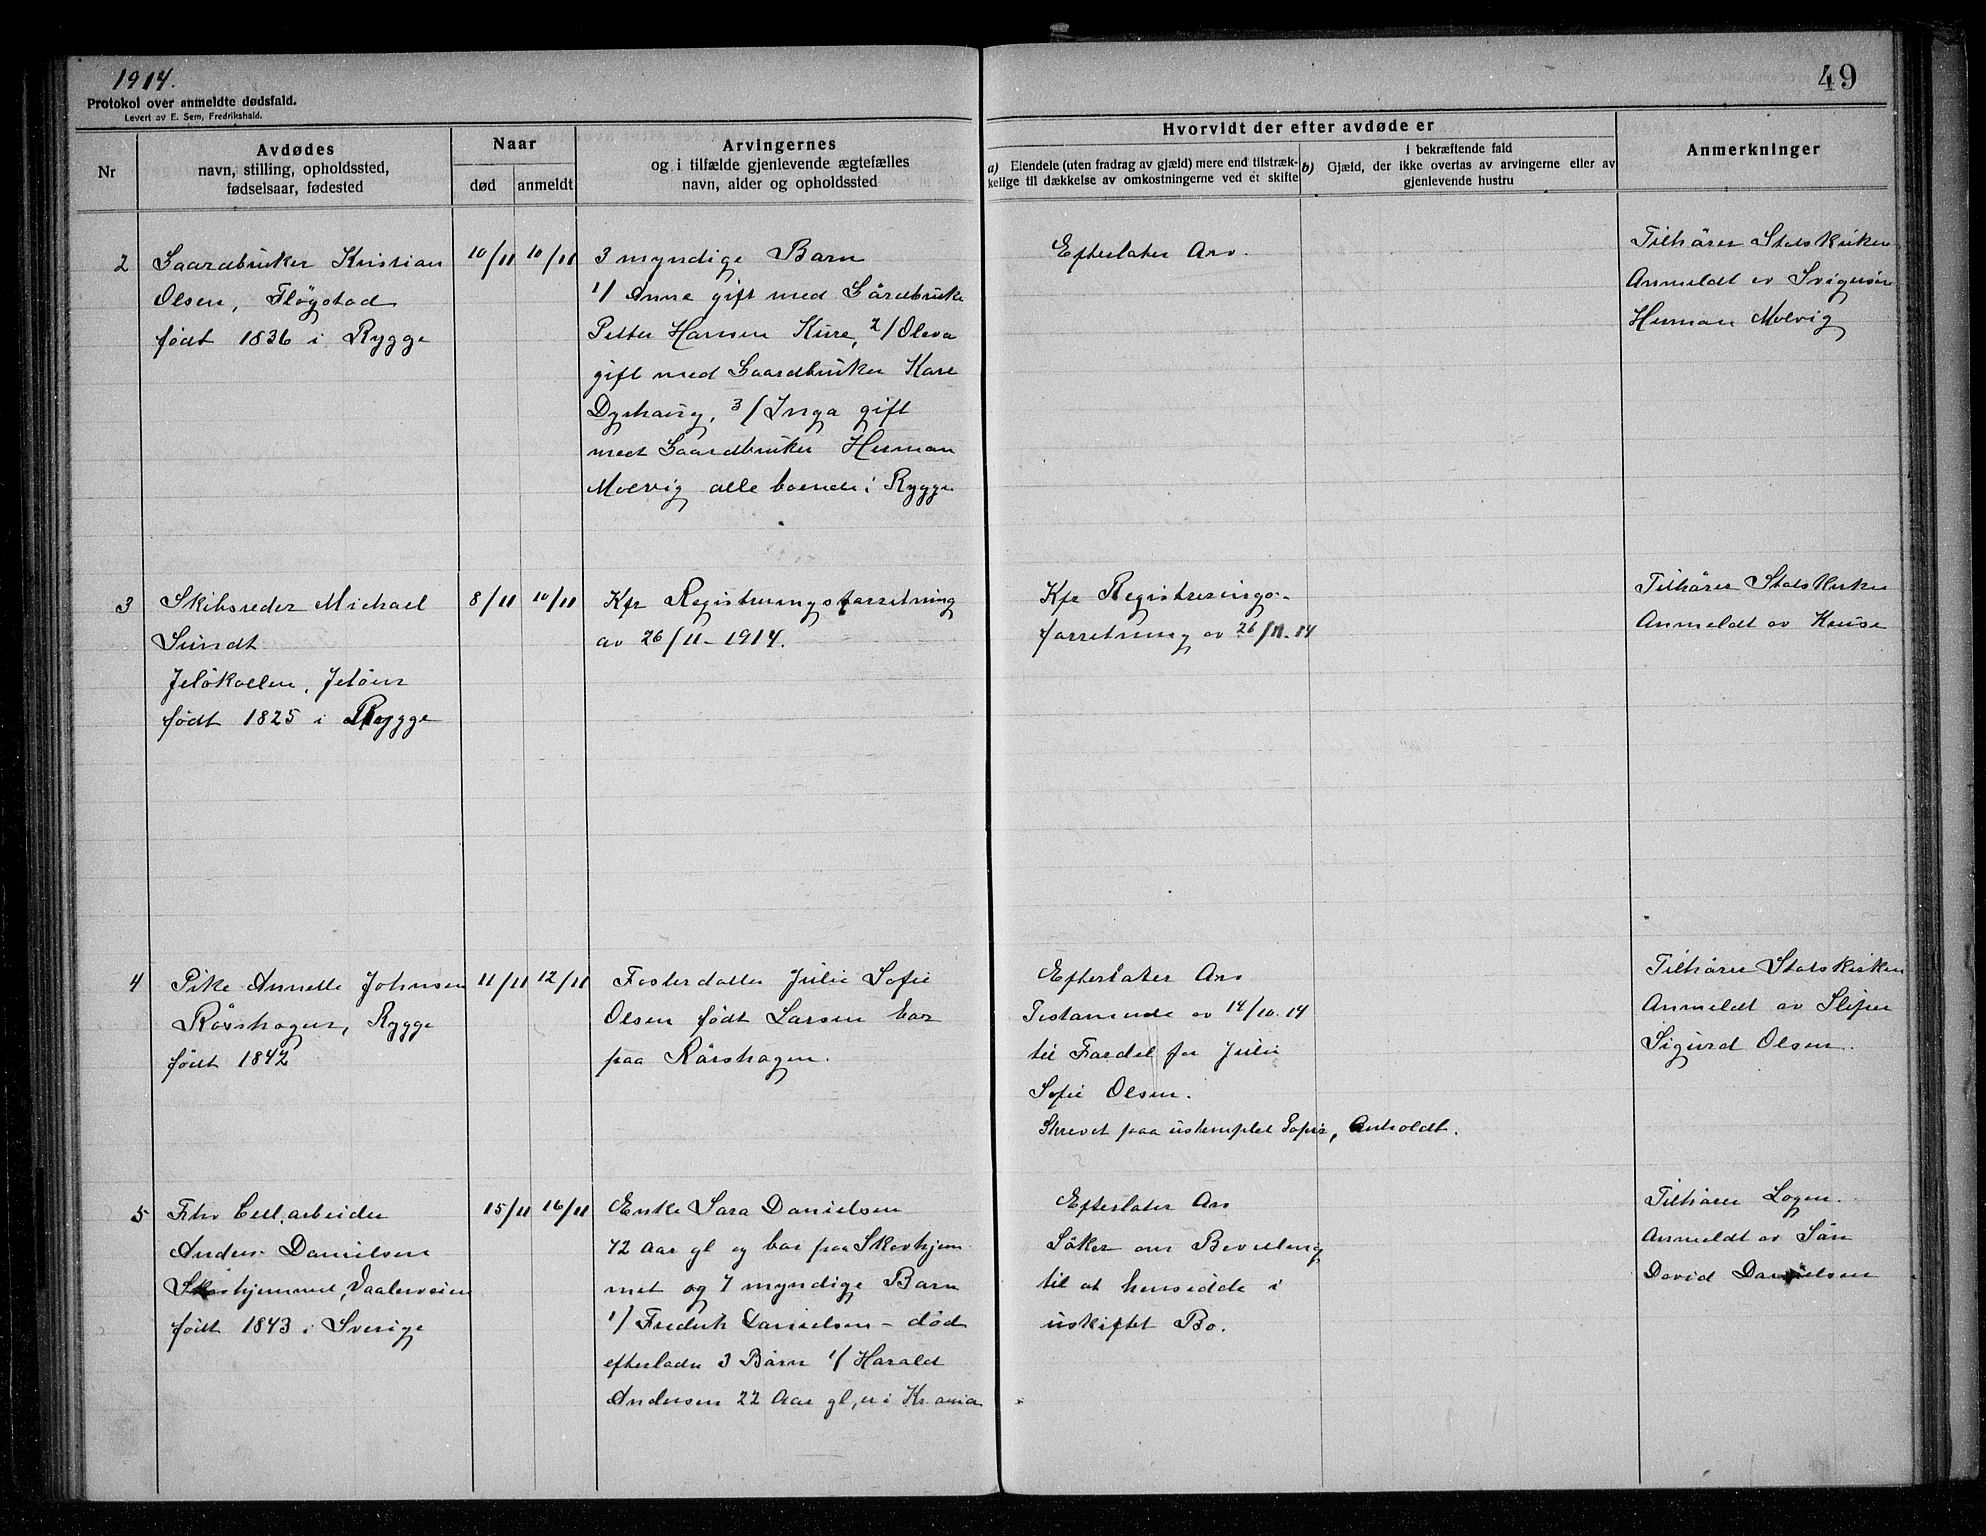 1914.
49
Protokol over anmeldte dødsfald.
Levert av E. Sem, Fredrikshald.
Nr
Avdødes
navn, stilling, opholdssted,
fødselsaar, fødested
Naar
død anmeldt
Arvingernes
og i tilfælde gjenlevende ægtefælles
navn, alder og opholdssted
Hvorvidt der efter avdøde er
a) Eiendele (uten fradrag av gjæld) mere end tilstræk-
kelige til dækkelse av omkostningerne ved et skifte
i bekræftende fald
b) Gjæld, der ikke overtas av arvingerne eller av
gjenlevende hustru
Anmerkninger
2
Gaardbruker Kristian
Olsen, Fløgstad
født 1836 i Rygge
10/11 10/11
3 myndige Barn
1/ Anna gift med Gårdbruke
Petter Hansen Kure, 2/ Oleva
gift med Gaardbruker Kare
Dyrhaug, 3/ Inga gift
med Gaardbruker Herman
Molvig alle boende i Rygge
Efterlater Arv.
Tilhører Statskirken
Anmeldt av Svigersøn
Herman Molvig
3
Skibsreder Michael
Sundt
Jeløkollen, Jeløen
født 1825 i Rygge
8/11 10/11
Kfr Registreringsforretning
av 26/11-1914.
Kfr Registrerings-
forretning av 26/11-14
Tilhører Statskirken
Anmeldt av Kruse
4
Pike Annette Johnsen
Rørshagen, Rygge
født 1842
11/11 12/11
Fosterdatter Julie Sofie
Olsen født Larsen bor
paa Rørshagen.
Efterlater Arv
Testamente av 14/10.14
til Fordel for Julie
Sofie Olsen.
Skrevet paa ustemplet Papir, Anholdt.
Tilhører Statskirken
Anmeldt av Sliper
Sigurd Olsen.
5
Fhv Cell.arbeider
Anders Danielsen
Skovhjemmet, Vaalerveien
født 1843 i Sverige
15/11 16/11
Enke Sara Danielsen
72 Aar gl og bor paa Skovhjem
met og 7 myndige Barn
1/ Frederik Danielsen - død
efterlader 3 Børn 1/ Harald
Andersen 22 Aar gl, er i Kr.ania
Efterlater Arv
Søker om Bevilling
til at hensidde i
uskiftet Bo.
Tilhører Logen.
Anmeldt av Søn
David Danielsen